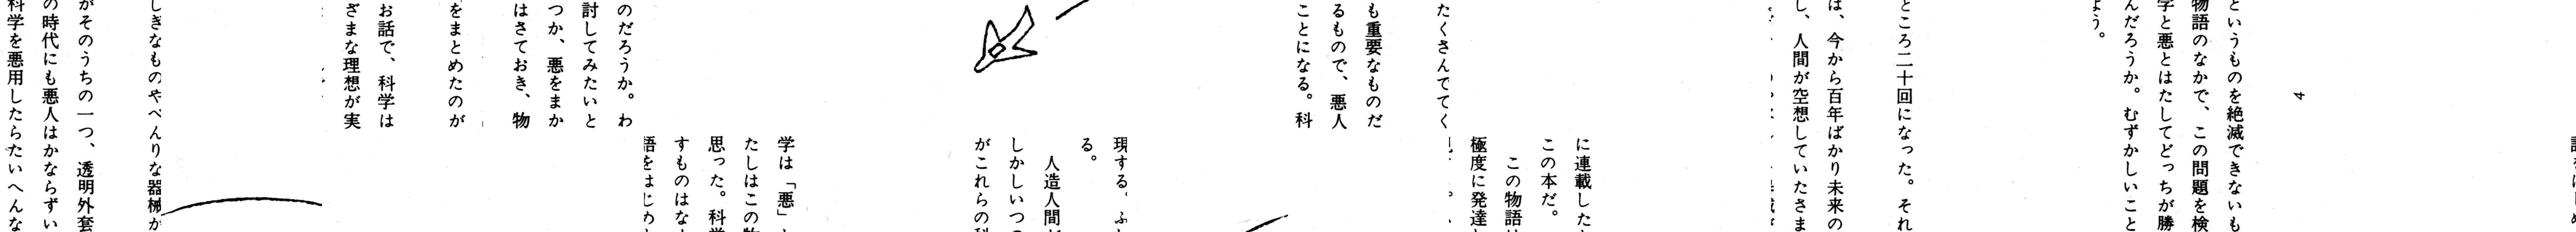 4
というものを絶滅できないも
物語のなかで、この問題を検
学と悪とはたしてどっちが勝
んだろうか。むずかしいこと
よう。
ところ二十回になった。それ
は、今から百年ばかり未来の
し、人間が空想していたさま
に連載した
この本だ。
この物語は
極度に発達
たくさんでてく
も重要なものだ
るもので、悪人
ことになる。科
現する。ふ
る。
人造人間
しかしいつ
がこれらの科
学は「悪」と
たしはこの物
思った。科学
すものはな
語をはじめ
のだろうか。わ
討してみたいと
つか、悪をまか
はさておき、物
をまとめたのが
お話で、科学は
ざまな理想が実
しぎなものやべんりな器械が
がそのうちの一つ、透明外套
の時代にも悪人はかならずい
科学を悪用したらたいへんな